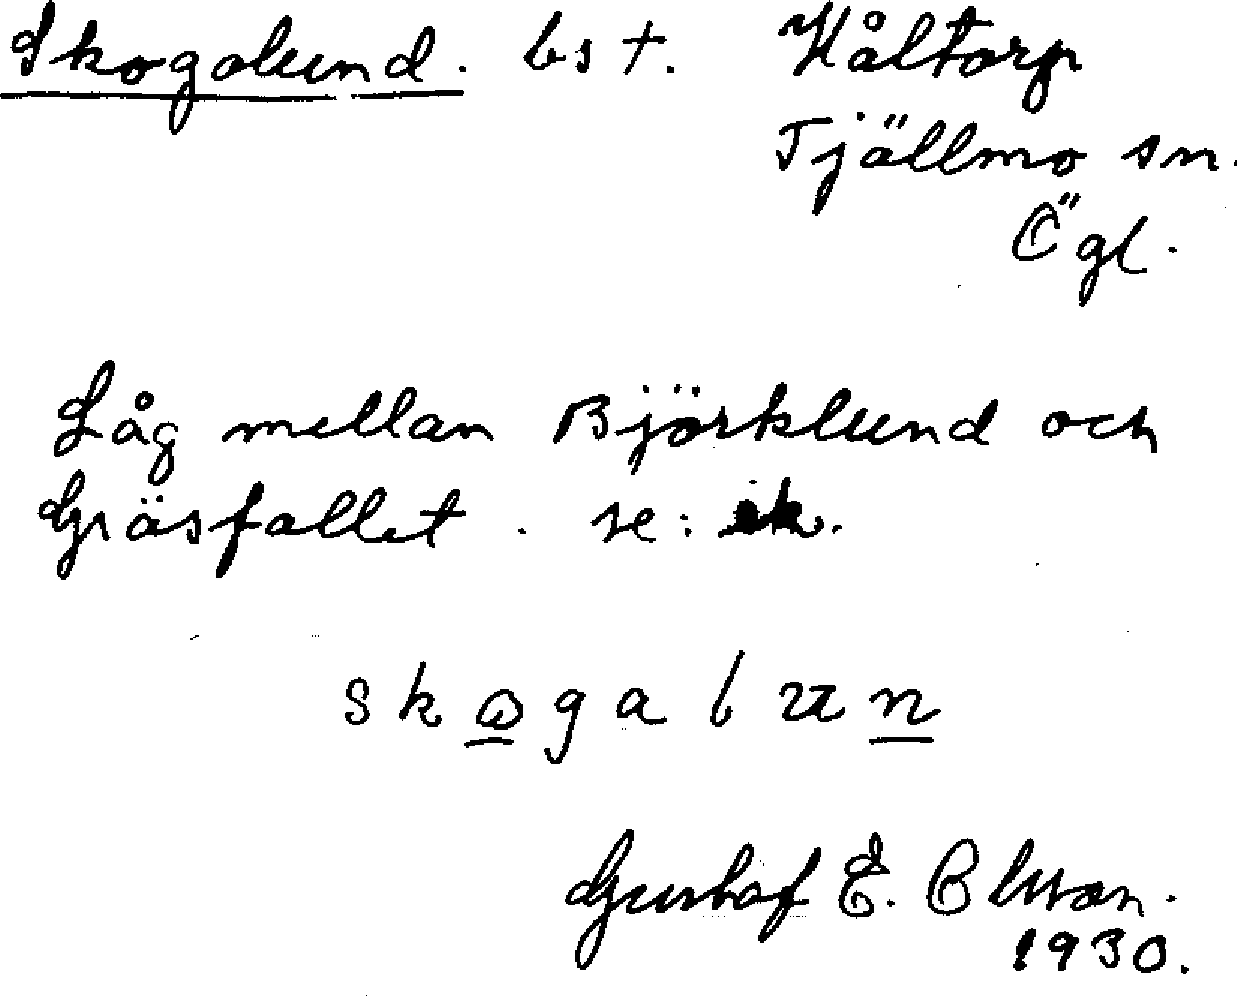 Skogalund. bst. Håltorp
Tjällmo sn.
Ögl.
Låg mellan Björklund och
Gräsfallet. se: ik.
skogalun
Gustaf E. Olsson.
1930.